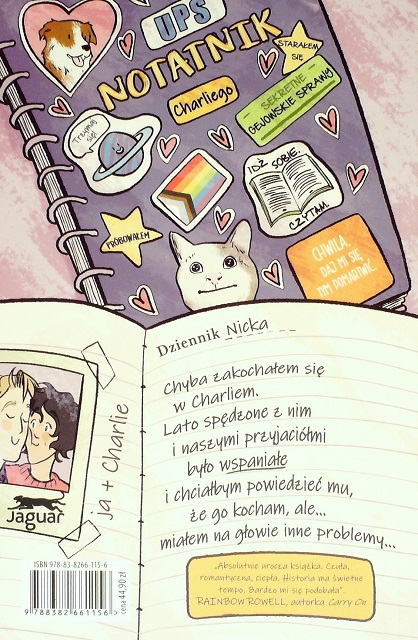 UPS
NOTATNIK
STARAŁEM
SIĘ
Charliego
SEKRETNE
GEJOWSKIE SPRAWY
Trzymaj
się!
IDŹ SOBIE.
CZYTAM.
PRÓBOWAŁEM
CHWILA,
DAJ MI SIĘ
TYM POMARTWIĆ
Dziennik Nicka
Chyba zakochałem się
w Charliem.
Lato spędzone z nim
i naszymi przyjaciółmi
było wspaniałe
i chciałbym powiedzieć mu,
że go kocham, ale...
miałem na głowie inne problemy...
ja + Charlie
Jaguar
ISBN 978-83-8266-115-6
9 788382 661156
cena 44,90 zł
„Absolutnie urocza książka. Czuła,
romantyczna, ciepła. Historia ma świetne
tempo. Bardzo mi się podobała”.
RAINBOW ROWELL, autorka Carry On